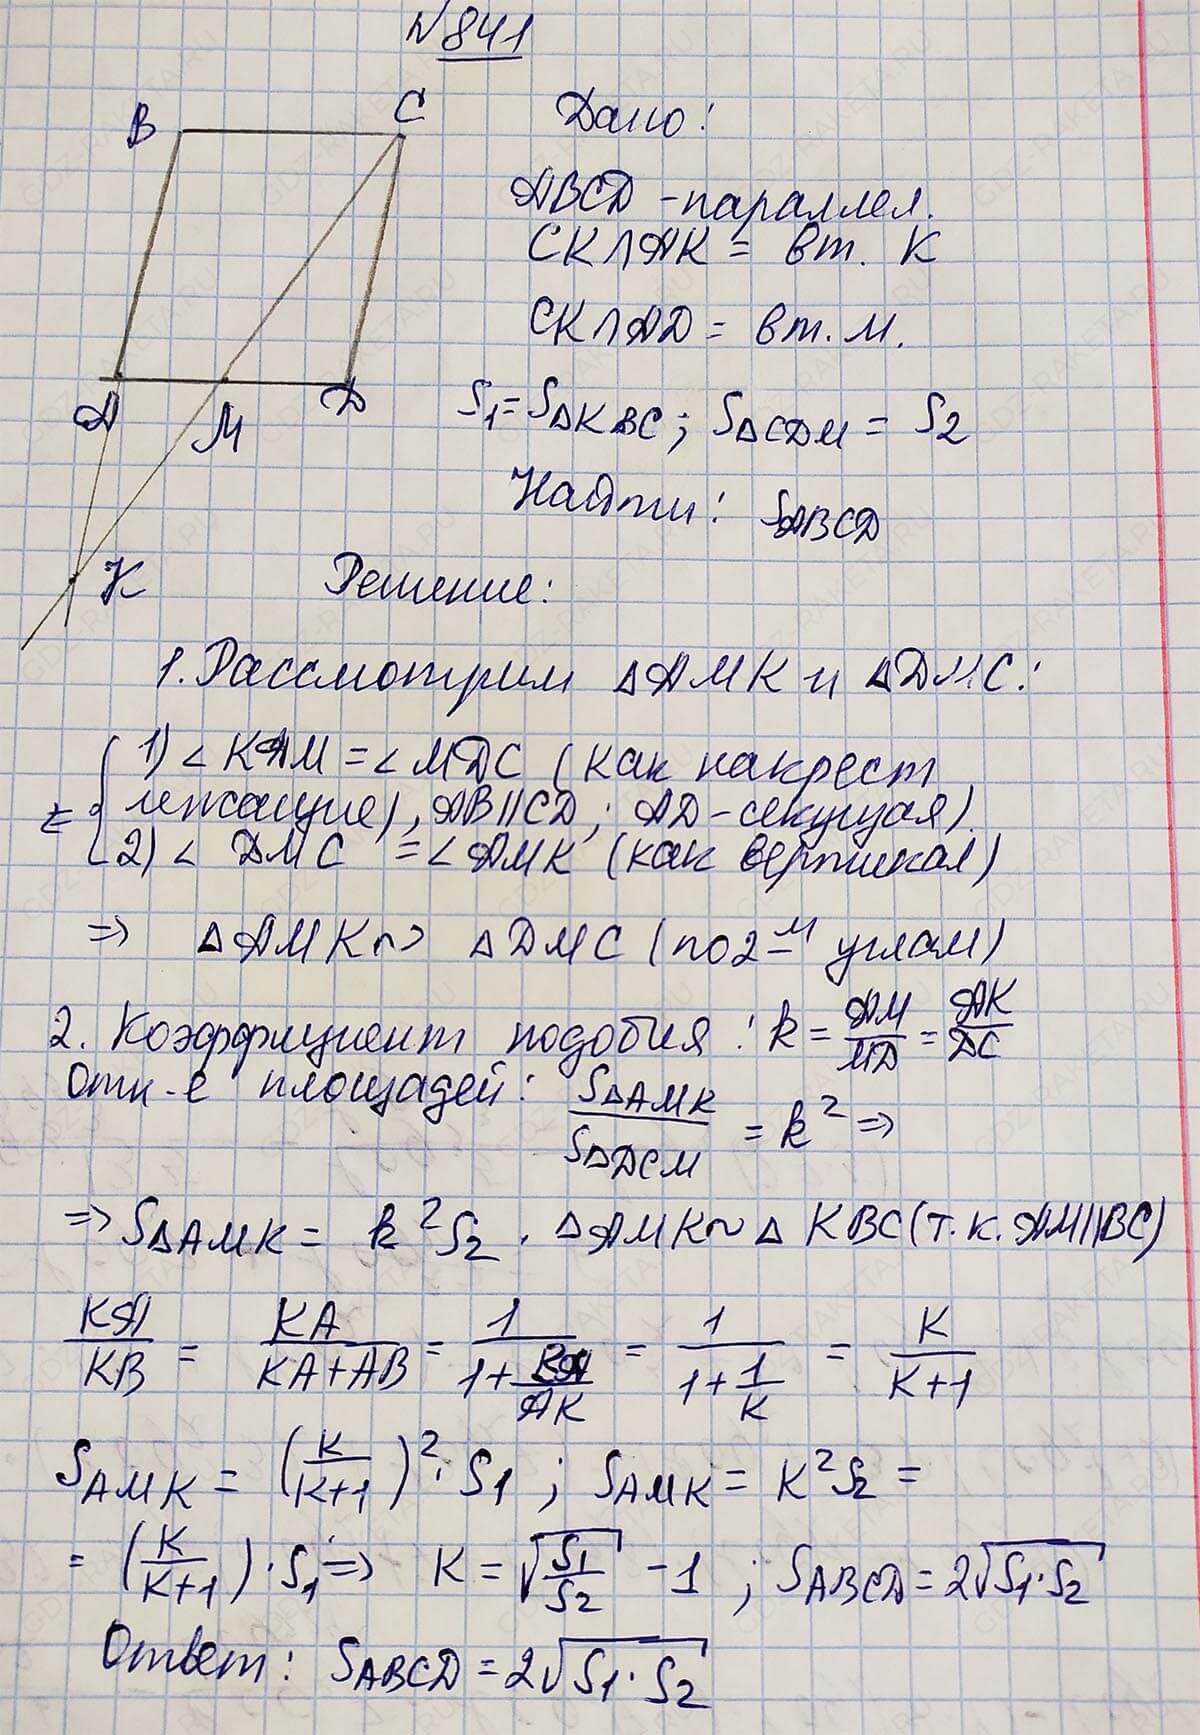 №841
B
C
A
M
D
K
Дано:
ABCD - параллел.
CK∩AK = вт. K
CK∩AD = вт. M.
S₁ = S△KBC; S△CDM = S₂
Найти: SABCD
Решение:
1. Рассмотрим △AMK и △DMC:
1) ∠KAM = ∠MDC (как накрест
лежащие), AB||CD; AD-секущая)
2) ∠DMC = ∠AMK (как вертикал)
⇒ △AMK ~ △DMC (по 2-м углам)
2. Коэффициент подобия: k = AM/MD = AK/DC
Отн-е площадей: S△AMK/S△DCM = k² ⇒
⇒ S△AMK = k²S₂. △AMK ~ △KBC (т.к. AM||BC)
KA/KB = KA/(KA+AB) = 1/(1+BA/AK) = 1/(1+1/K) = K/(K+1)
SAMK = (K/(K+1))² · S₁; SAMK = K²S₂ =
= (K/(K+1)) · S₁ ⇒ K = √(S₁/S₂) - 1; SABCD = 2√(S₁·S₂)
Ответ: SABCD = 2√(S₁·S₂)
GDZ-RAKETA.RU